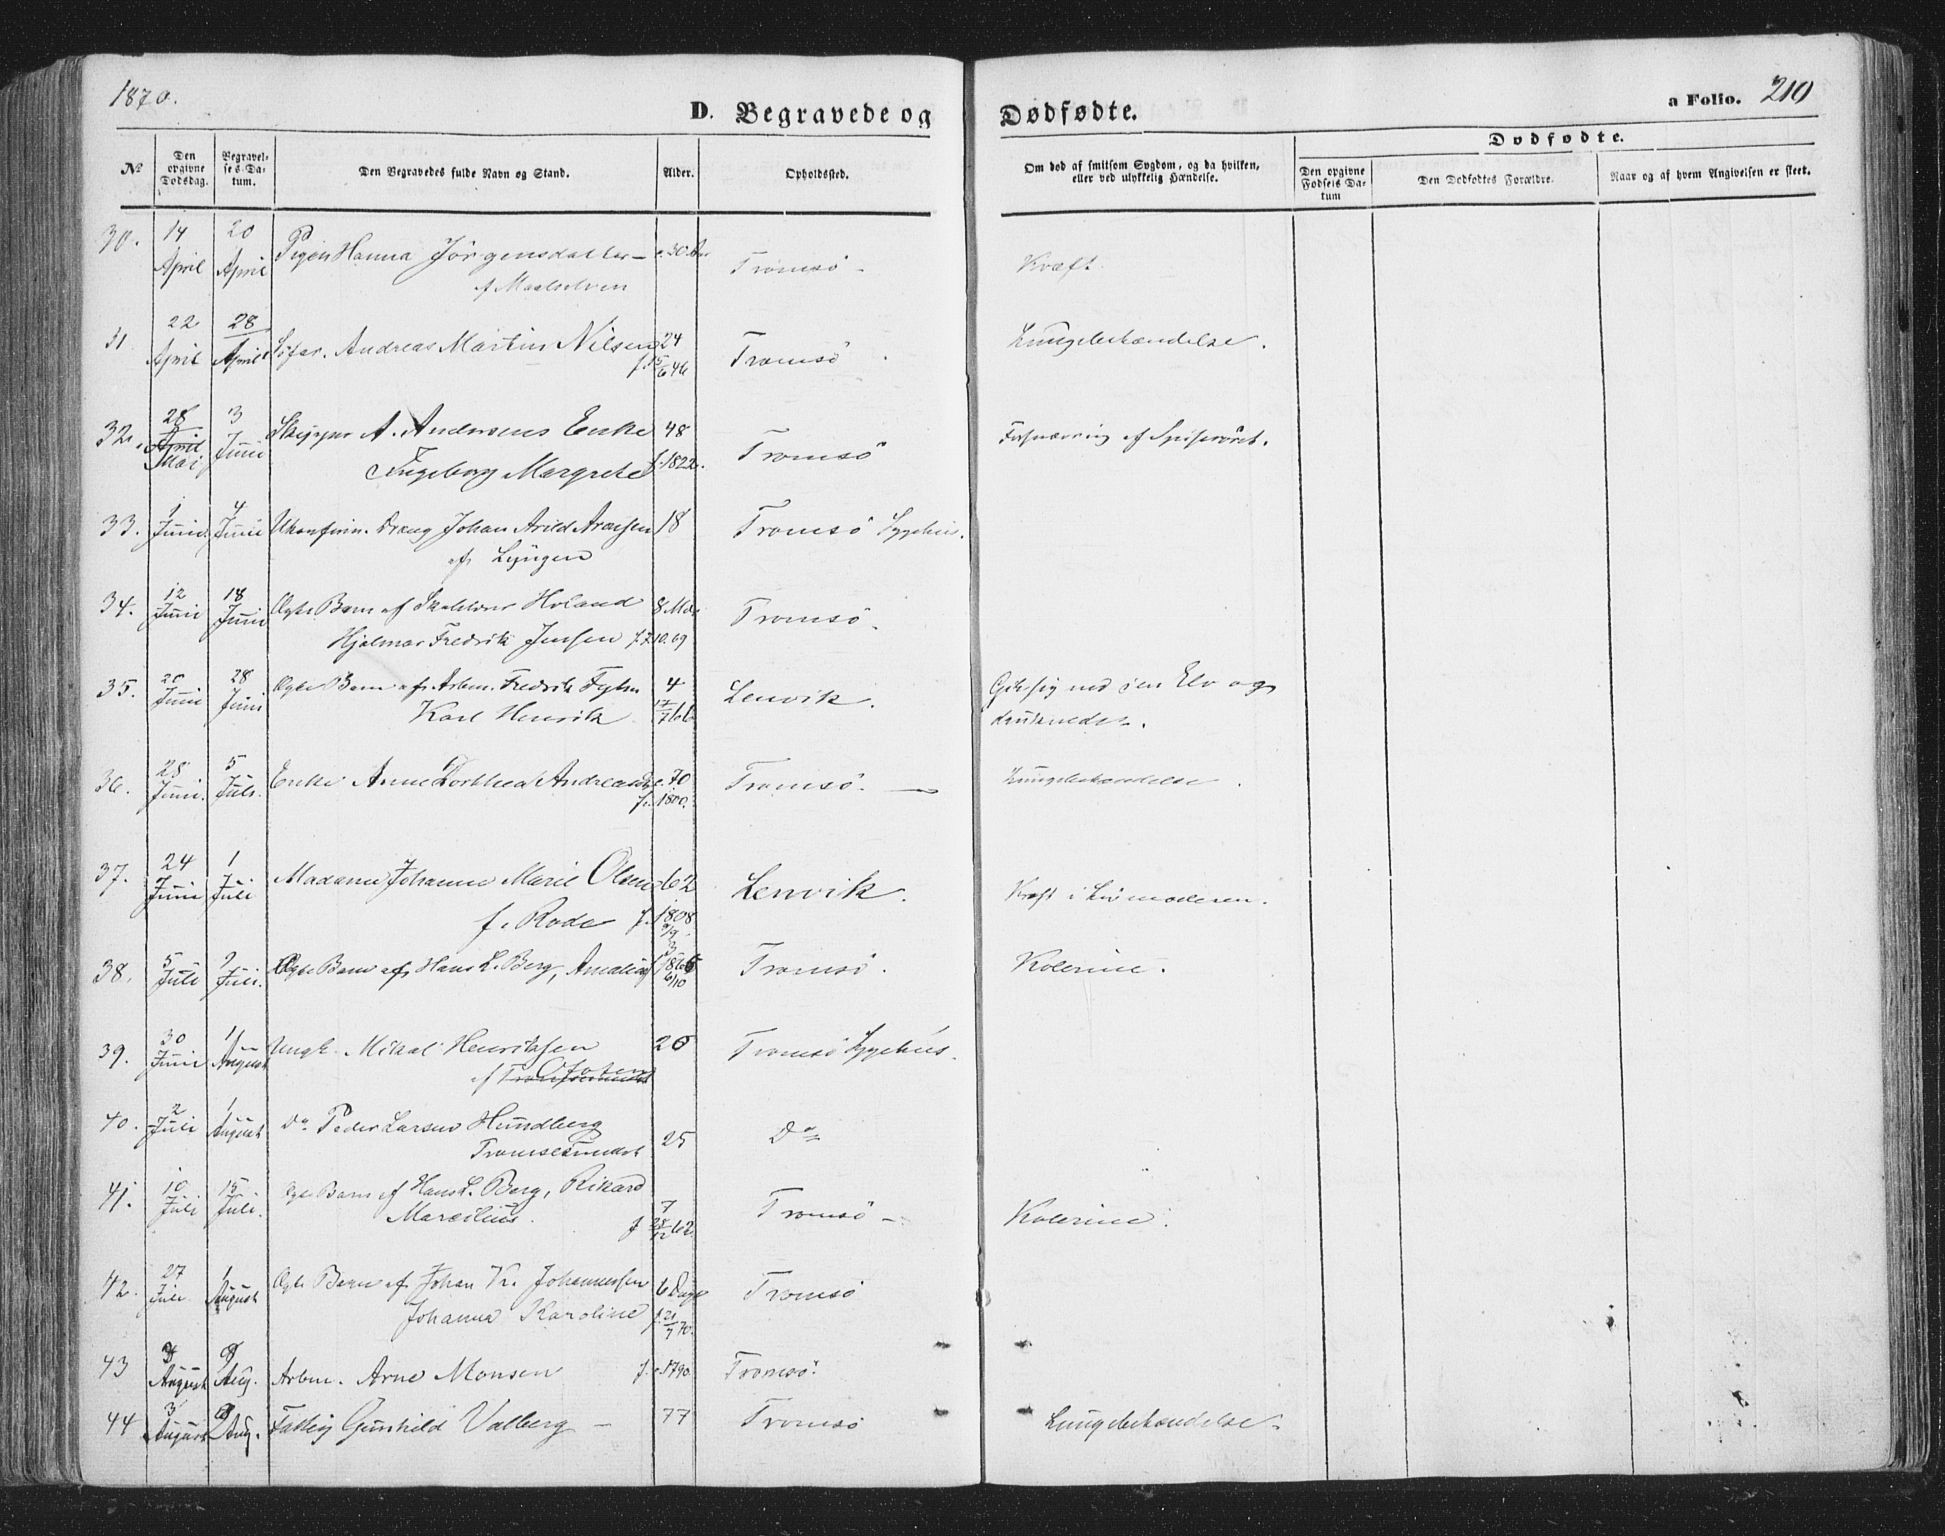 1870.
D. Begravede og Dødfødte.
a Folio. 210
Dødfødte.
No
Den opgivne Dødsdag.
Begravelses-Datum.
Den Begravedes fulde Navn og Stand.
Alder.
Opholdssted.
Om død af smitsom Sygdom, og da hvilken, eller ved ulykkelig Hændelse.
Den opgivne Fødsels Datum
Den Dødfødtes Forældre.
Naar og af hvem Angivelsen er skeet.
30. 14 April 20 April Pigen Hanna Jörgensdatter - 30 Tromsö - Kræft.
af Maalselven
31 22 April 28 April Andreas Martin Nilsen 24 Tromsö Lungebetændelse.
f. 15/6 46
32. 28 April Mai 3 Juni Skipper A. Andersens Enke 48 Tromsö Forsnævring af Spiseröret.
Ingeborg Margrete f. 1822.
33. 1 Juni 4 Juni Ukonfirm. Dreng Johan Arild Aronsen 18 Tromsö Sygehus.
af Lyngen
34. 12 Juni 18 Juni Ægte Barn af Holand 8 Md. Tromsö.
Hjalmar Fredrik Jensen f. 7.10.69
35. 20 Juni 28 Juni Ægte Barn af Arbm. Fredrik 4 Lenvik. Gik sig ned i en Elv og
Karl Henrik 17/7 66 druknede.
36. 28 Juni. 5 Juli. Enke Anne Dorthea Andreasd. c. 70 Tromsö. Lungebetændelse.
f. 1800.
37. 24 Juni 1 Juli Madame Johanne Marie Olsen 62 Lenvik. Kræft i Livmoderen.
f. Rode f. 1808
38. 5 Juli Juli. Ægte Barn af Hans L. Berg, 3 Tromsö. Kolerine.
6/10
39. 30 Juni 1 August Ungk. Mikal Henriksen 26 Tromsö Sygehus.
af Tromsösundet Ofoten
40. 2 Juli 1 August Do Peder Larsen Hundberg 25 Do
Tromsösundet
41. 10 Juli 15 Juli. Ægte Barn af Hans L. Berg, Rikard 7 Tromsö - Kolerine.
Marcelius. f. 28/12 62.
42. 27 Juli 1 August Ægte Barn af Johan K. Johannessen 6 Dage Tromsö
Johanna Karoline f. 21/7 70.
43 3 August 8 Aug. Arbm. Arne Monsen f. c. 1790. Tromsö.
44 3 August Aug. Fattig Gunhild Valberg - 77 Tromsö Lungebetændelse.